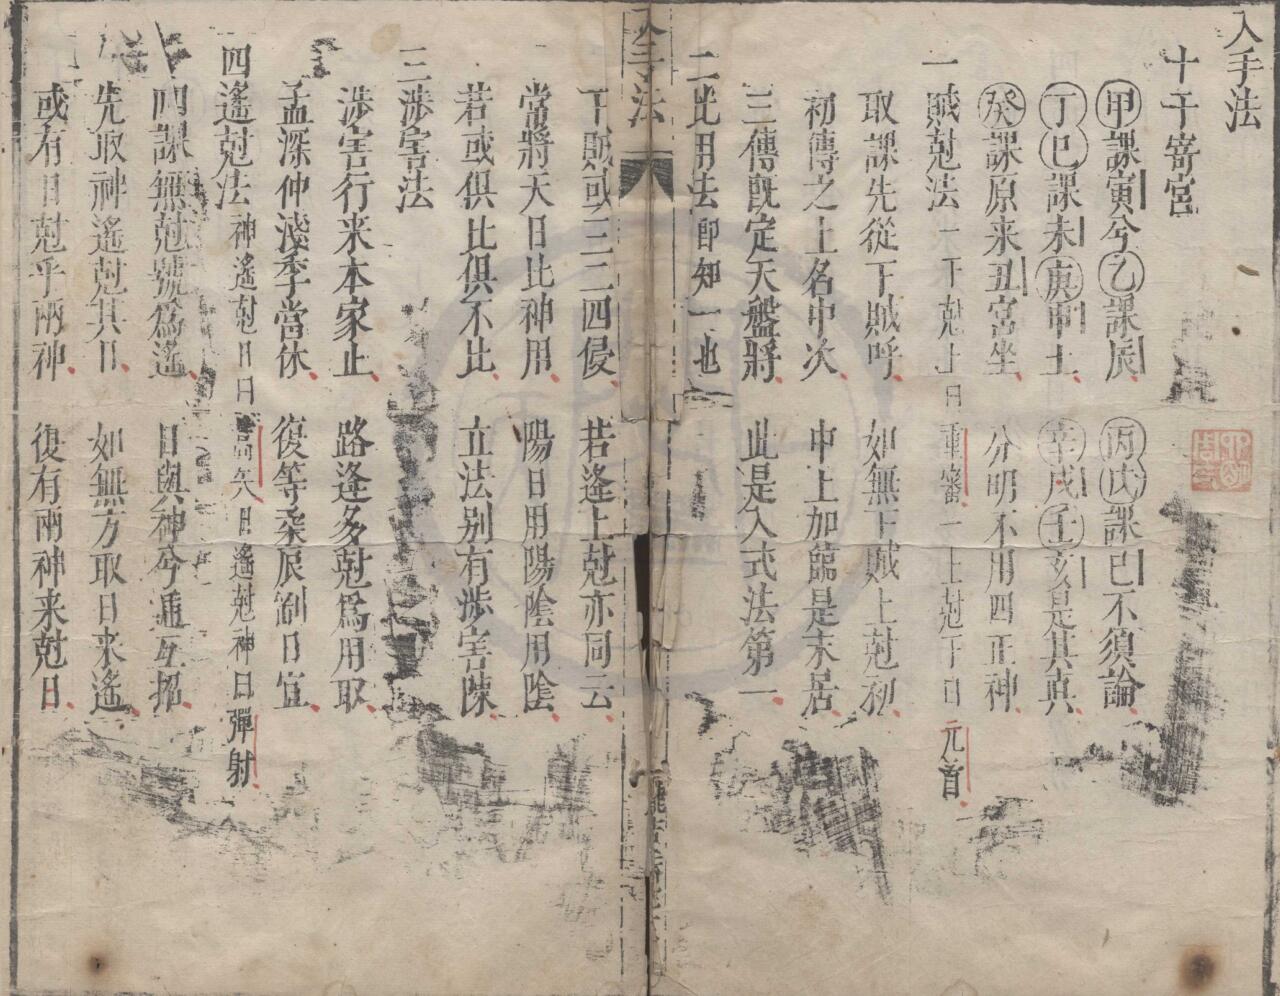 入手法
十干寄宮
甲課寅兮乙課辰 丙戊課巳不須論
丁己課未庚申上 辛戌壬亥是其真
癸課原来丑宮坐 分明不用四正神
一賊尅法 一下尅上曰重審一上尅下曰元首
取課先從下賊呼 如無下賊上尅初
初傳之上名中次 中上加臨是末居
三傳旣定天盤將 此是入式法第一
二比用法 即知一也
下賊或三二四侵 若逢上尅亦同云
常將天日比神用 陽日用陽陰用陰
若或俱比俱不比 立法别有涉害陳
三涉害法
涉害行来本家止 路逢多尅爲用取
孟深仲淺季當休 復等柔辰剛日宜
四遙尅法 神遙尅日曰蒿矢日遙尅神曰彈射
四課無尅號爲遙 日與神兮遞互招
先取神遙尅其日 如無方取日来遙
或有日尅乎兩神 復有兩神来尅日
入手法